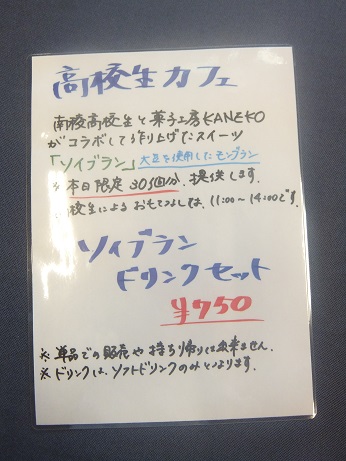 高校生カフェ
南稜高校生と菓子工房KANEKO
がコラボして作り上げたスイーツ
「ソイブラン」大豆を使用したモンブラン
を本日限定30個分、提供します。
高校生によるおもてなしは、11:00~14:00です。
ソイブラン
ドリンクセット
¥750
※単品での販売や持ち帰りは出来ません。
※ドリンクは、ソフトドリンクのみとなります。